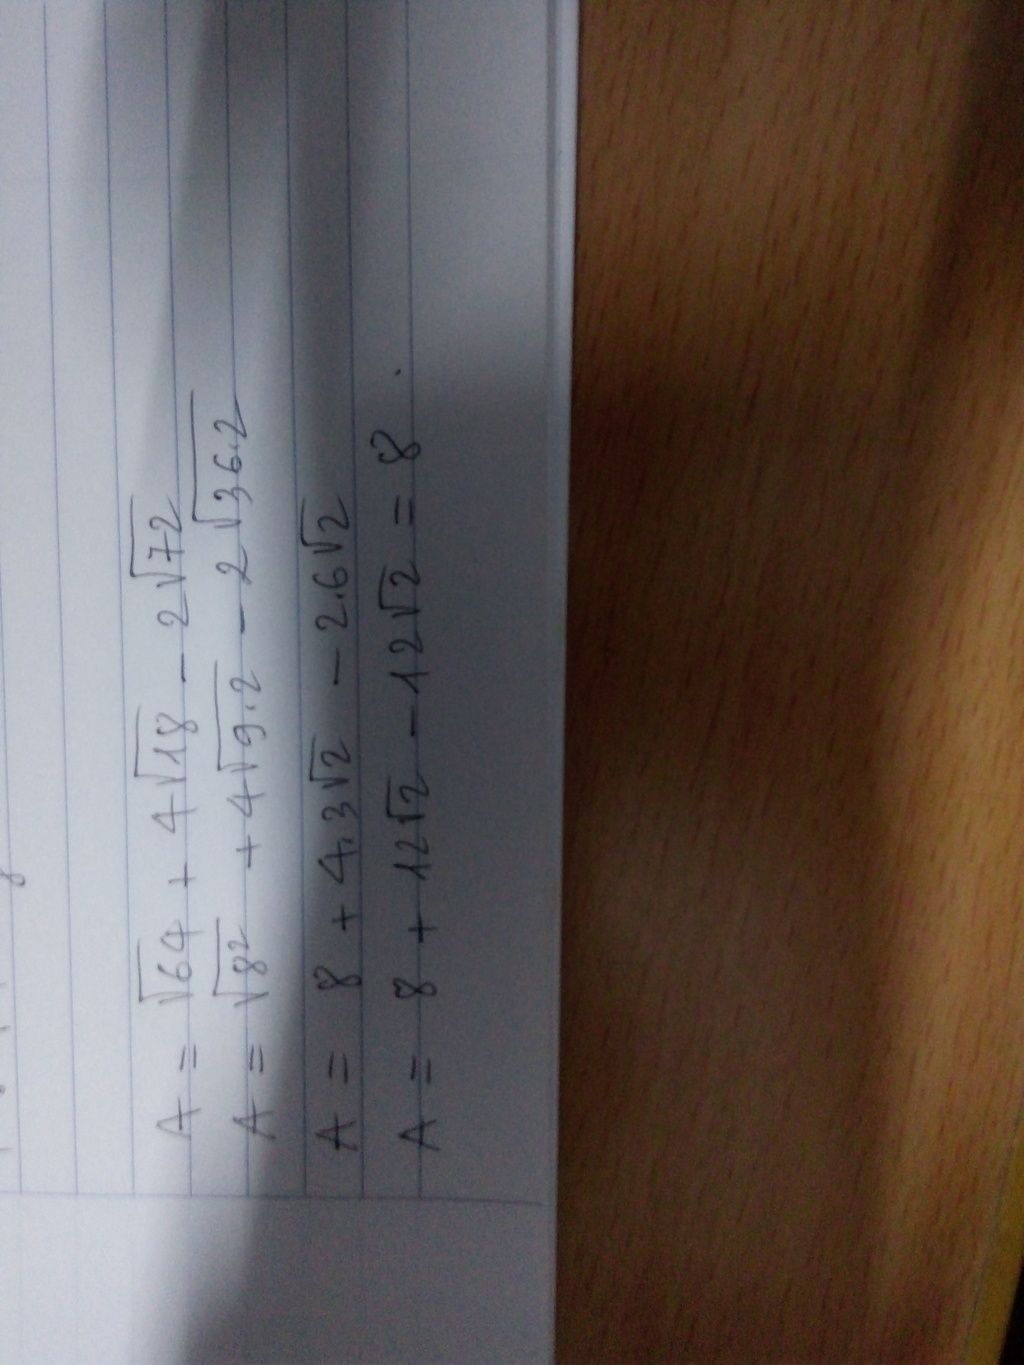 A = √64 + 4√18 - 2√72
A = √8² + 4√9.2 - 2√36.2
A = 8 + 4.3√2 - 2.6√2
A = 8 + 12√2 - 12√2 = 8.